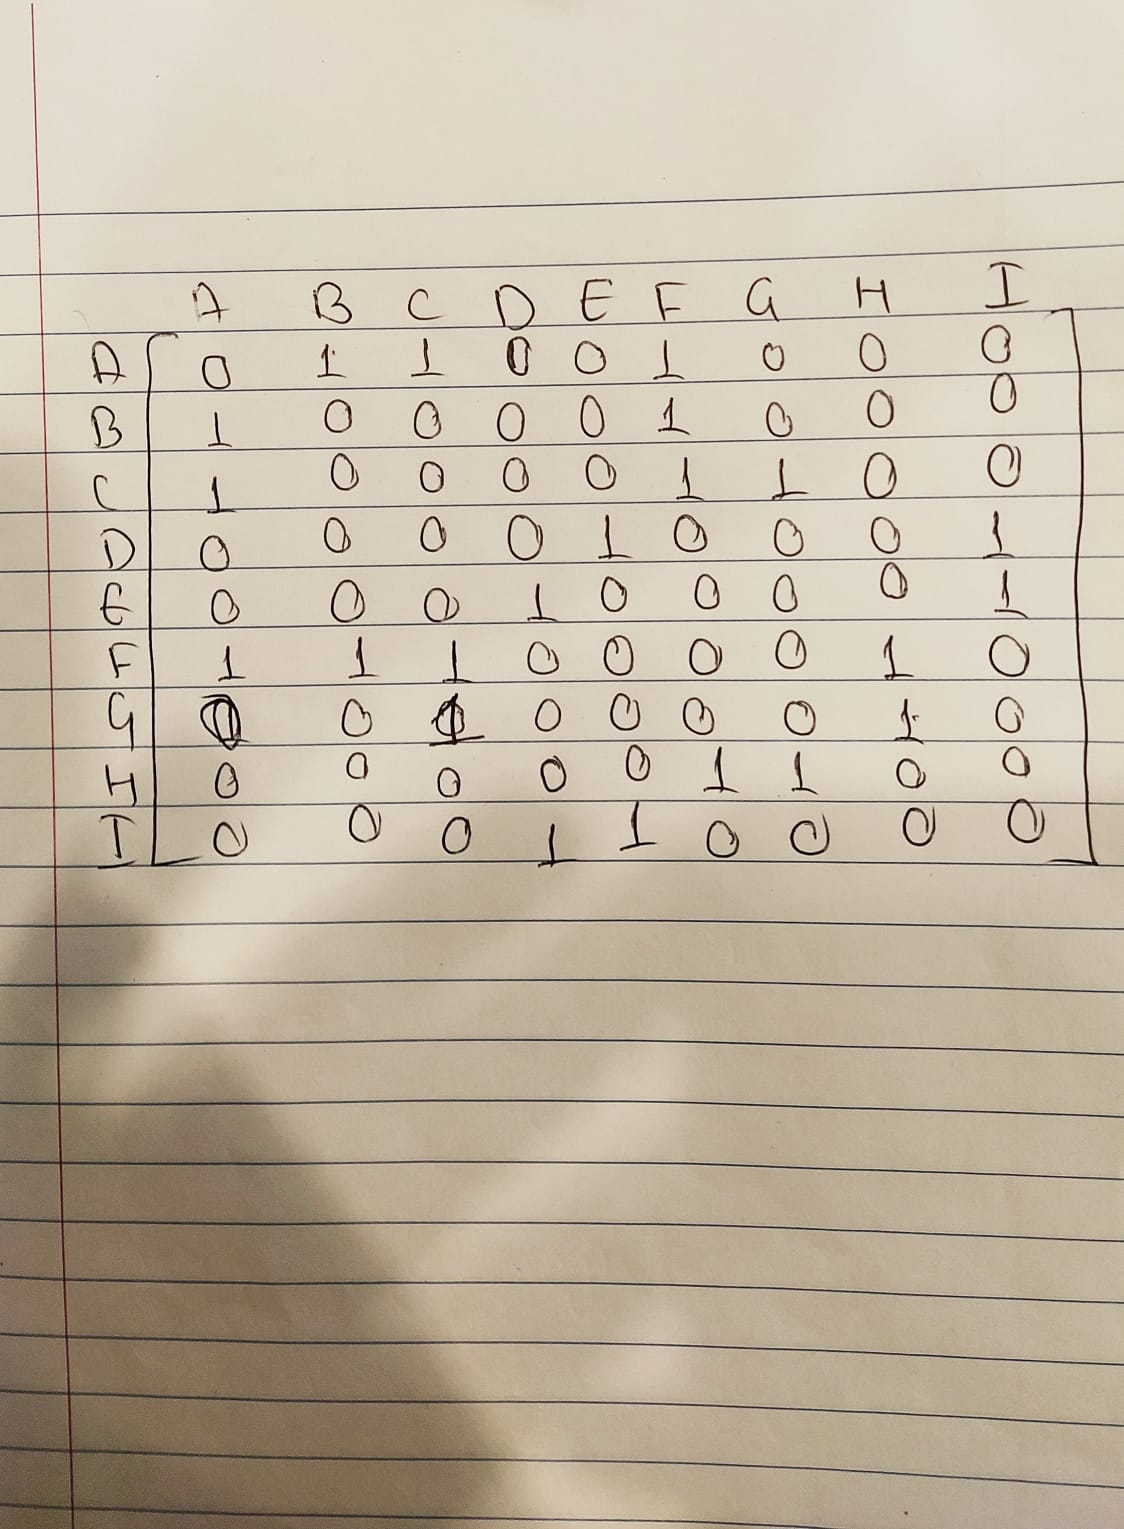 A B C D E F G H I
A 0 1 1 0 0 1 0 0 0
B 1 0 0 0 0 1 0 0 0
C 1 0 0 0 0 1 1 0 0
D 0 0 0 0 1 0 0 0 1
E 0 0 0 1 0 0 0 0 1
F 1 1 1 0 0 0 0 1 0
G 0 1 0 0 0 0 1 0
H 0 0 0 0 0 1 1 0 0
I 0 0 0 1 1 0 0 0 0